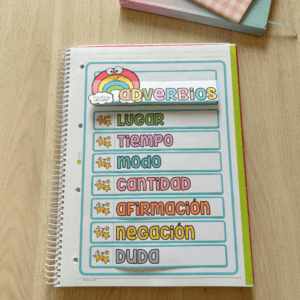 ADVERBIOS
LUGAR
TIEMPO
MODO
CANTIDAD
AFIRMACIÓN
NEGACIÓN
DUDA